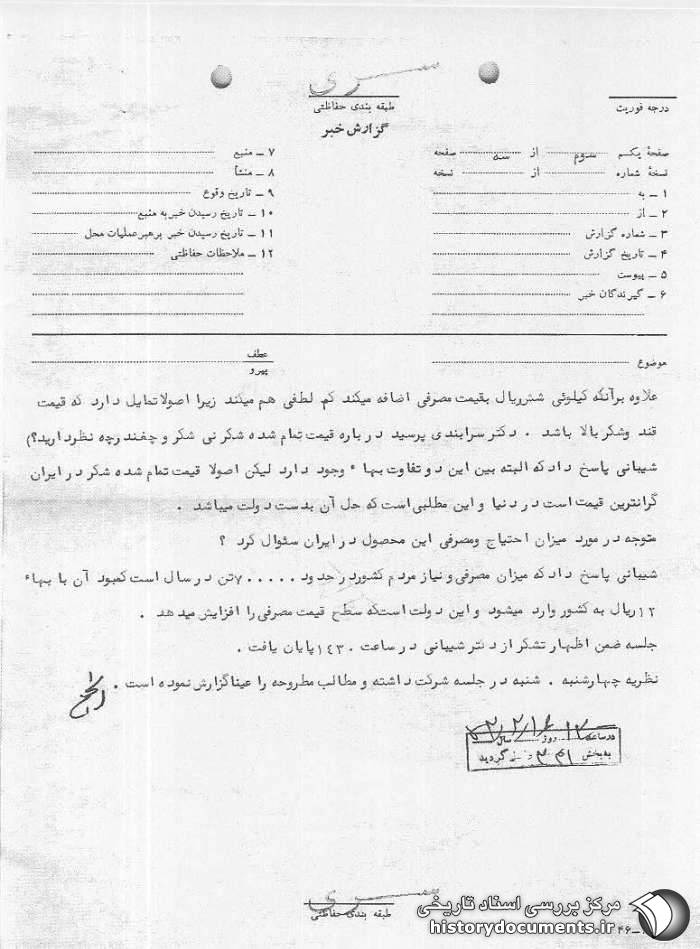 سری
طبقه بندی حفاظتی
درجه فوریت
گزارش خبر
صفحهٔ یکم سوم از سه صفحه
نسخهٔ شماره از نسخه
۱ ـ به
۲ ـ از
۳ ـ شماره گزارش
۴ ـ تاریخ گزارش
۵ ـ پیوست
۶ ـ گیرندگان خبر
۷ ـ منبع
۸ ـ منشأ
۹ ـ تاریخ وقوع
۱۰ ـ تاریخ رسیدن خبر به منبع
۱۱ ـ تاریخ رسیدن خبر برهبر عملیات محل
۱۲ ـ ملاحظات حفاظتی
موضوع
عطف
پیرو
علاوه برآنکه کیلوئی شش ریال بقیمت مصرفی اضافه میکند کم لطفی هم میکند زیرا اصولا تمایل دارد که قیمت
قند وشکر بالا باشد . دکتر سرابندی پرسید درباره قیمت تمام شده شکر نی شکر و چغندر چه نظر دارید؟)
شیبانی پاسخ داد که البته بین این دو تفاوت بهاء وجود دارد لیکن اصولا قیمت تمام شده شکر در ایران
گرانترین قیمت است در دنیا و این مطلبی است که حل آن بدست دولت میباشد .
متوجه در مورد میزان احتیاج ومصرفی این محصول در ایران سئوال کرد ؟
شیبانی پاسخ داد که میزان مصرفی و نیاز مردم کشور در حدود ۷۰۰۰۰۰ تن در سال است کمبود آن با بهاء
۱۲ ریال به کشور وارد میشود و این دولت است که سطح قیمت مصرفی را افزایش میدهد .
جلسه ضمن اظهار تشکر از دکتر شیبانی در ساعت ۱۴۳۰ پایان یافت .
نظریه چهارشنبه . شنبه در جلسه شرکت داشته و مطالب مطروحه را عینا گزارش نموده است .
در ساعت روز سال
به بخش گردید
سری
طبقه بندی حفاظتی
مرکز بررسی اسناد تاریخی
historydocuments.ir